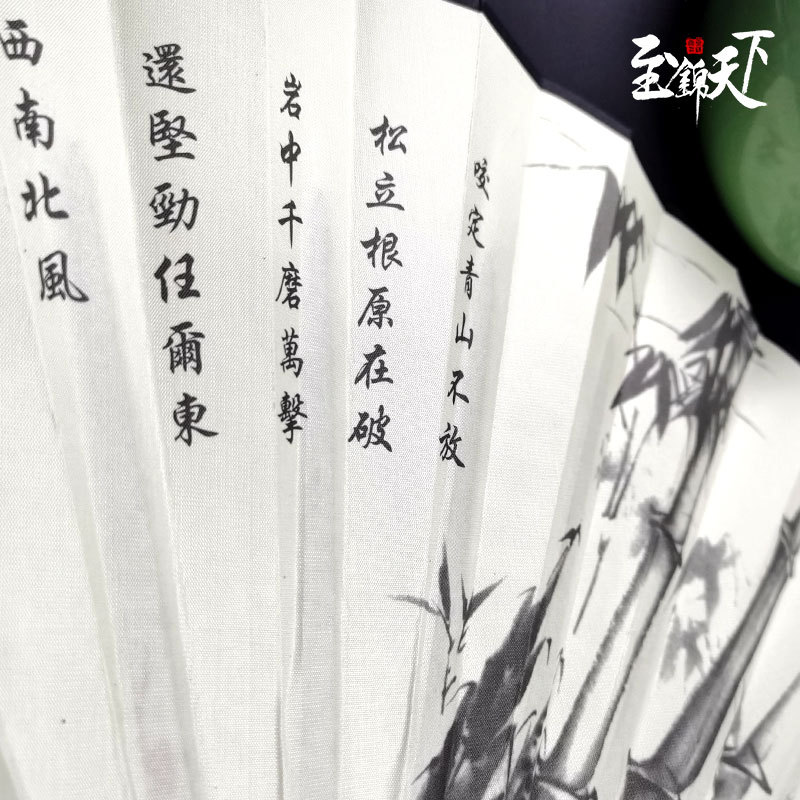 咬定青山不放
松立根原在破
岩中千磨萬擊
還堅勁任爾東
西南北風
至錦天下